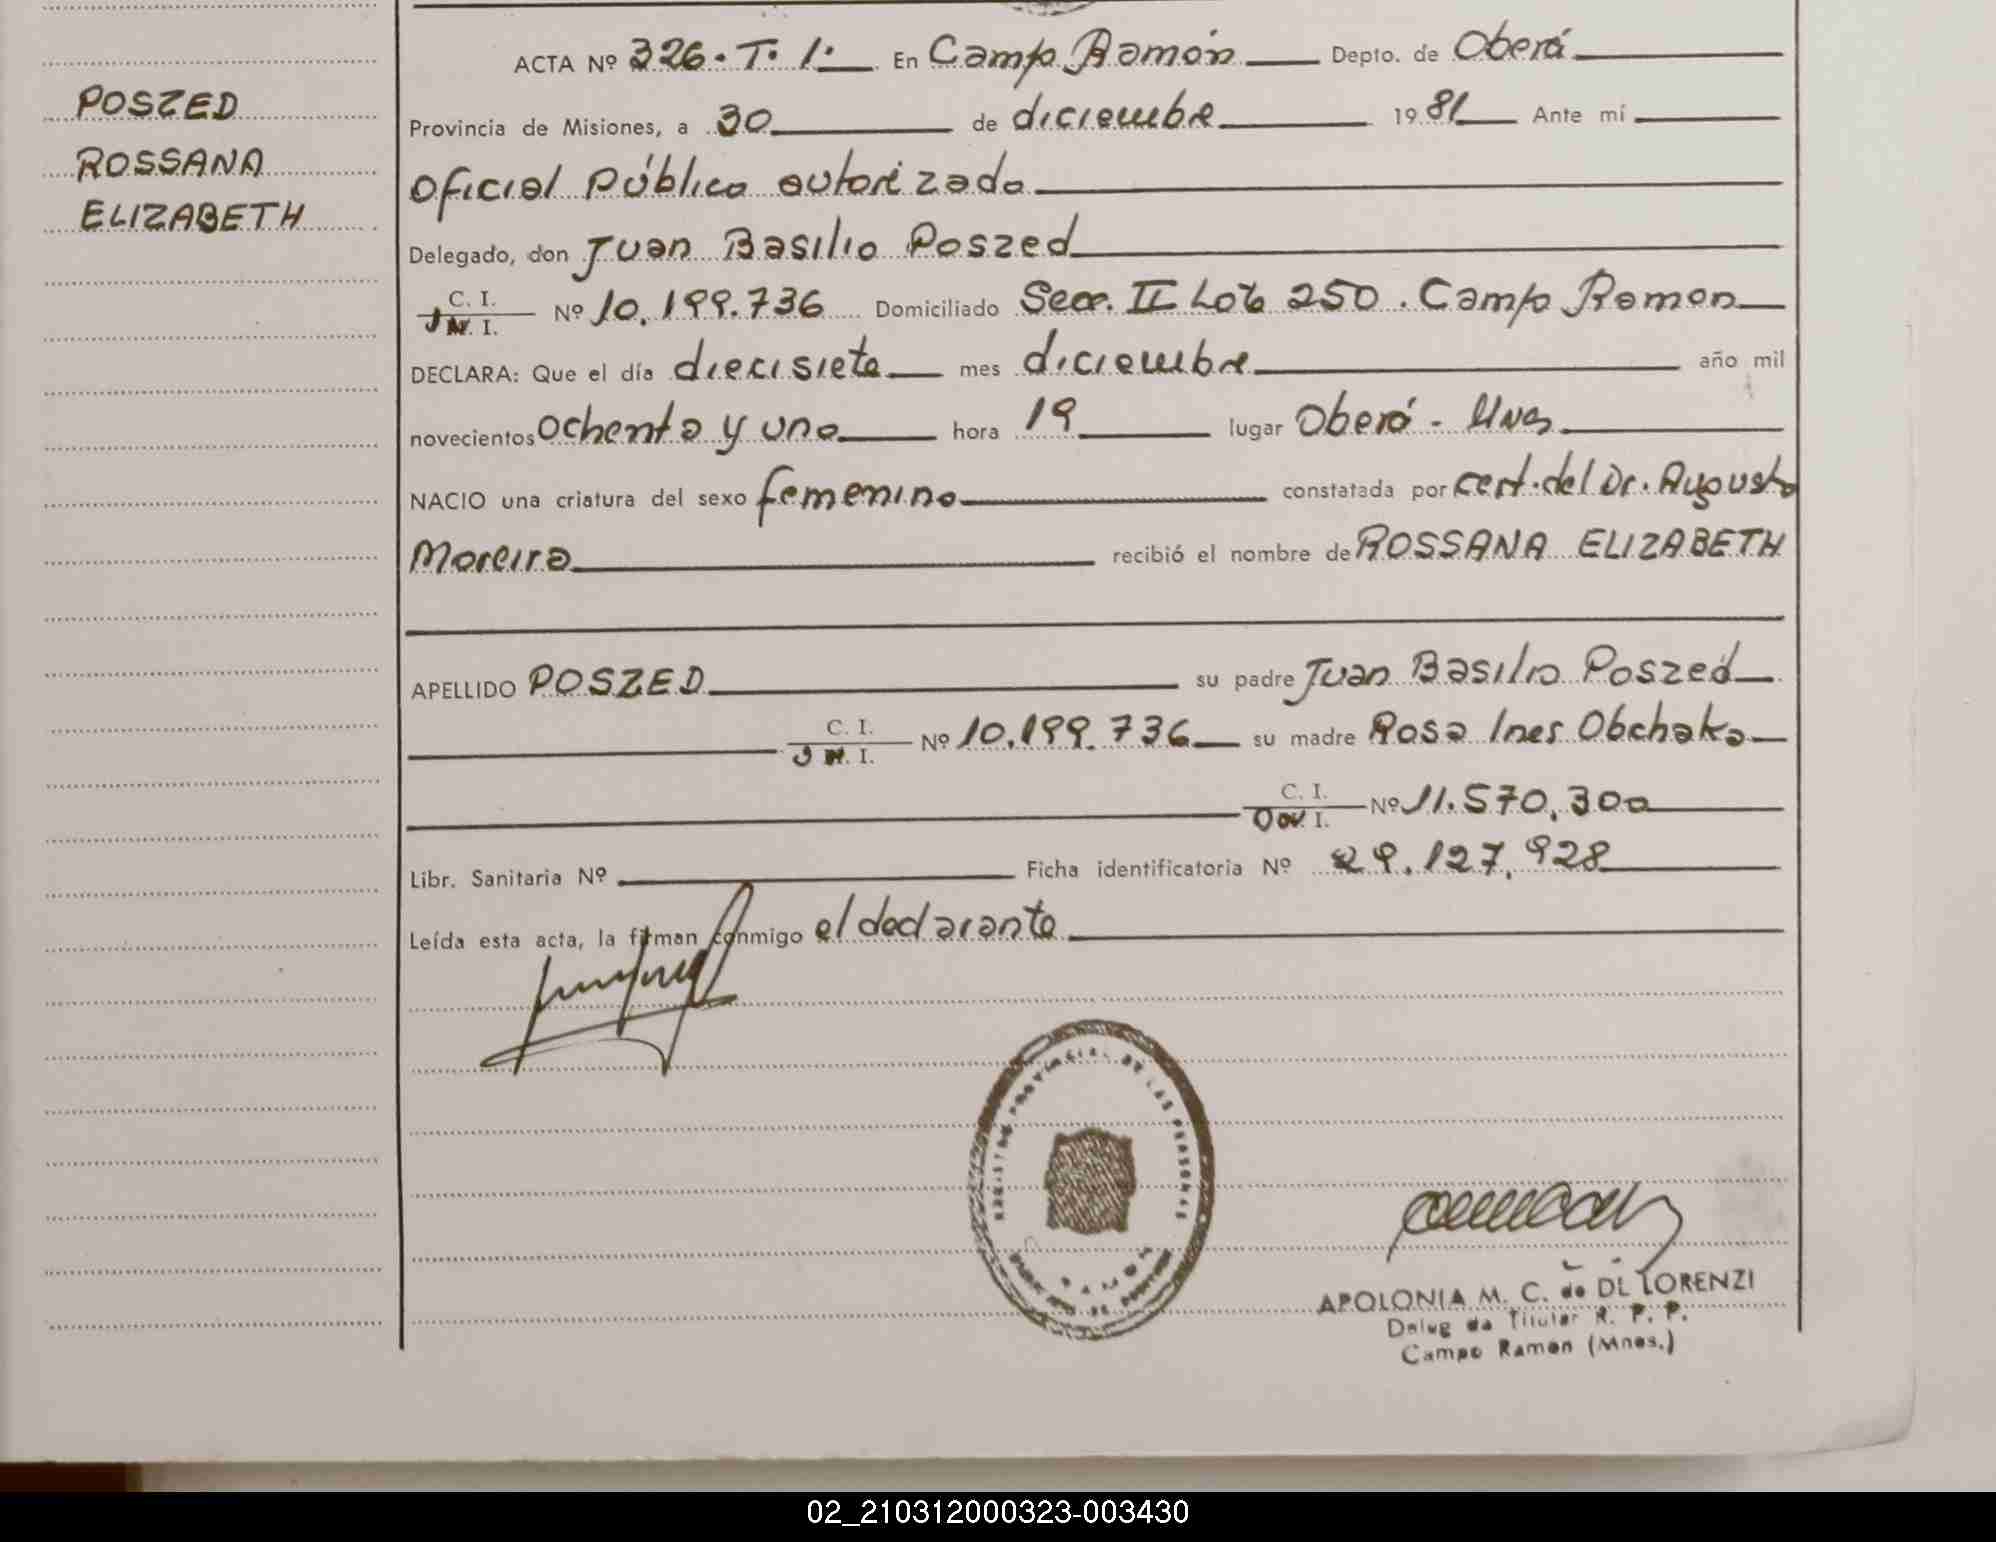 POSZED
ROSSANA
ELIZABETH
ACTA Nº 326. T. 1. En Campo Ramón Depto. de Oberá
Provincia de Misiones, a 30 de diciembre 1981 Ante mí
Oficial Público autorizado
Delegado, don Juan Basilio Poszed
C. I.
Nº 10.199.736 Domiciliado Secc. II Lote 250. Campo Ramon
DECLARA: Que el día diecisiete mes diciembre año mil
novecientos ochenta y uno hora 19 lugar Oberá - Mnes
NACIO una criatura del sexo femenino constatada por cert. del Dr. Augusto
Moreira recibió el nombre de ROSSANA ELIZABETH
APELLIDO POSZED su padre Juan Basilio Poszed
C. I.
Nº 10.199.736 su madre Rosa Ines Obchaka
C. I.
Nº 11.570.300
Libr. Sanitaria Nº Ficha identificatoria Nº 29.127.928
Leída esta acta, la firman conmigo el declarante
REGISTRO PROVINCIAL DE LAS PERSONAS
APOLONIA M. C. de DE LORENZI
Titular R. P. P.
Campo Ramon (Mnes.)
02_210312000323-003430